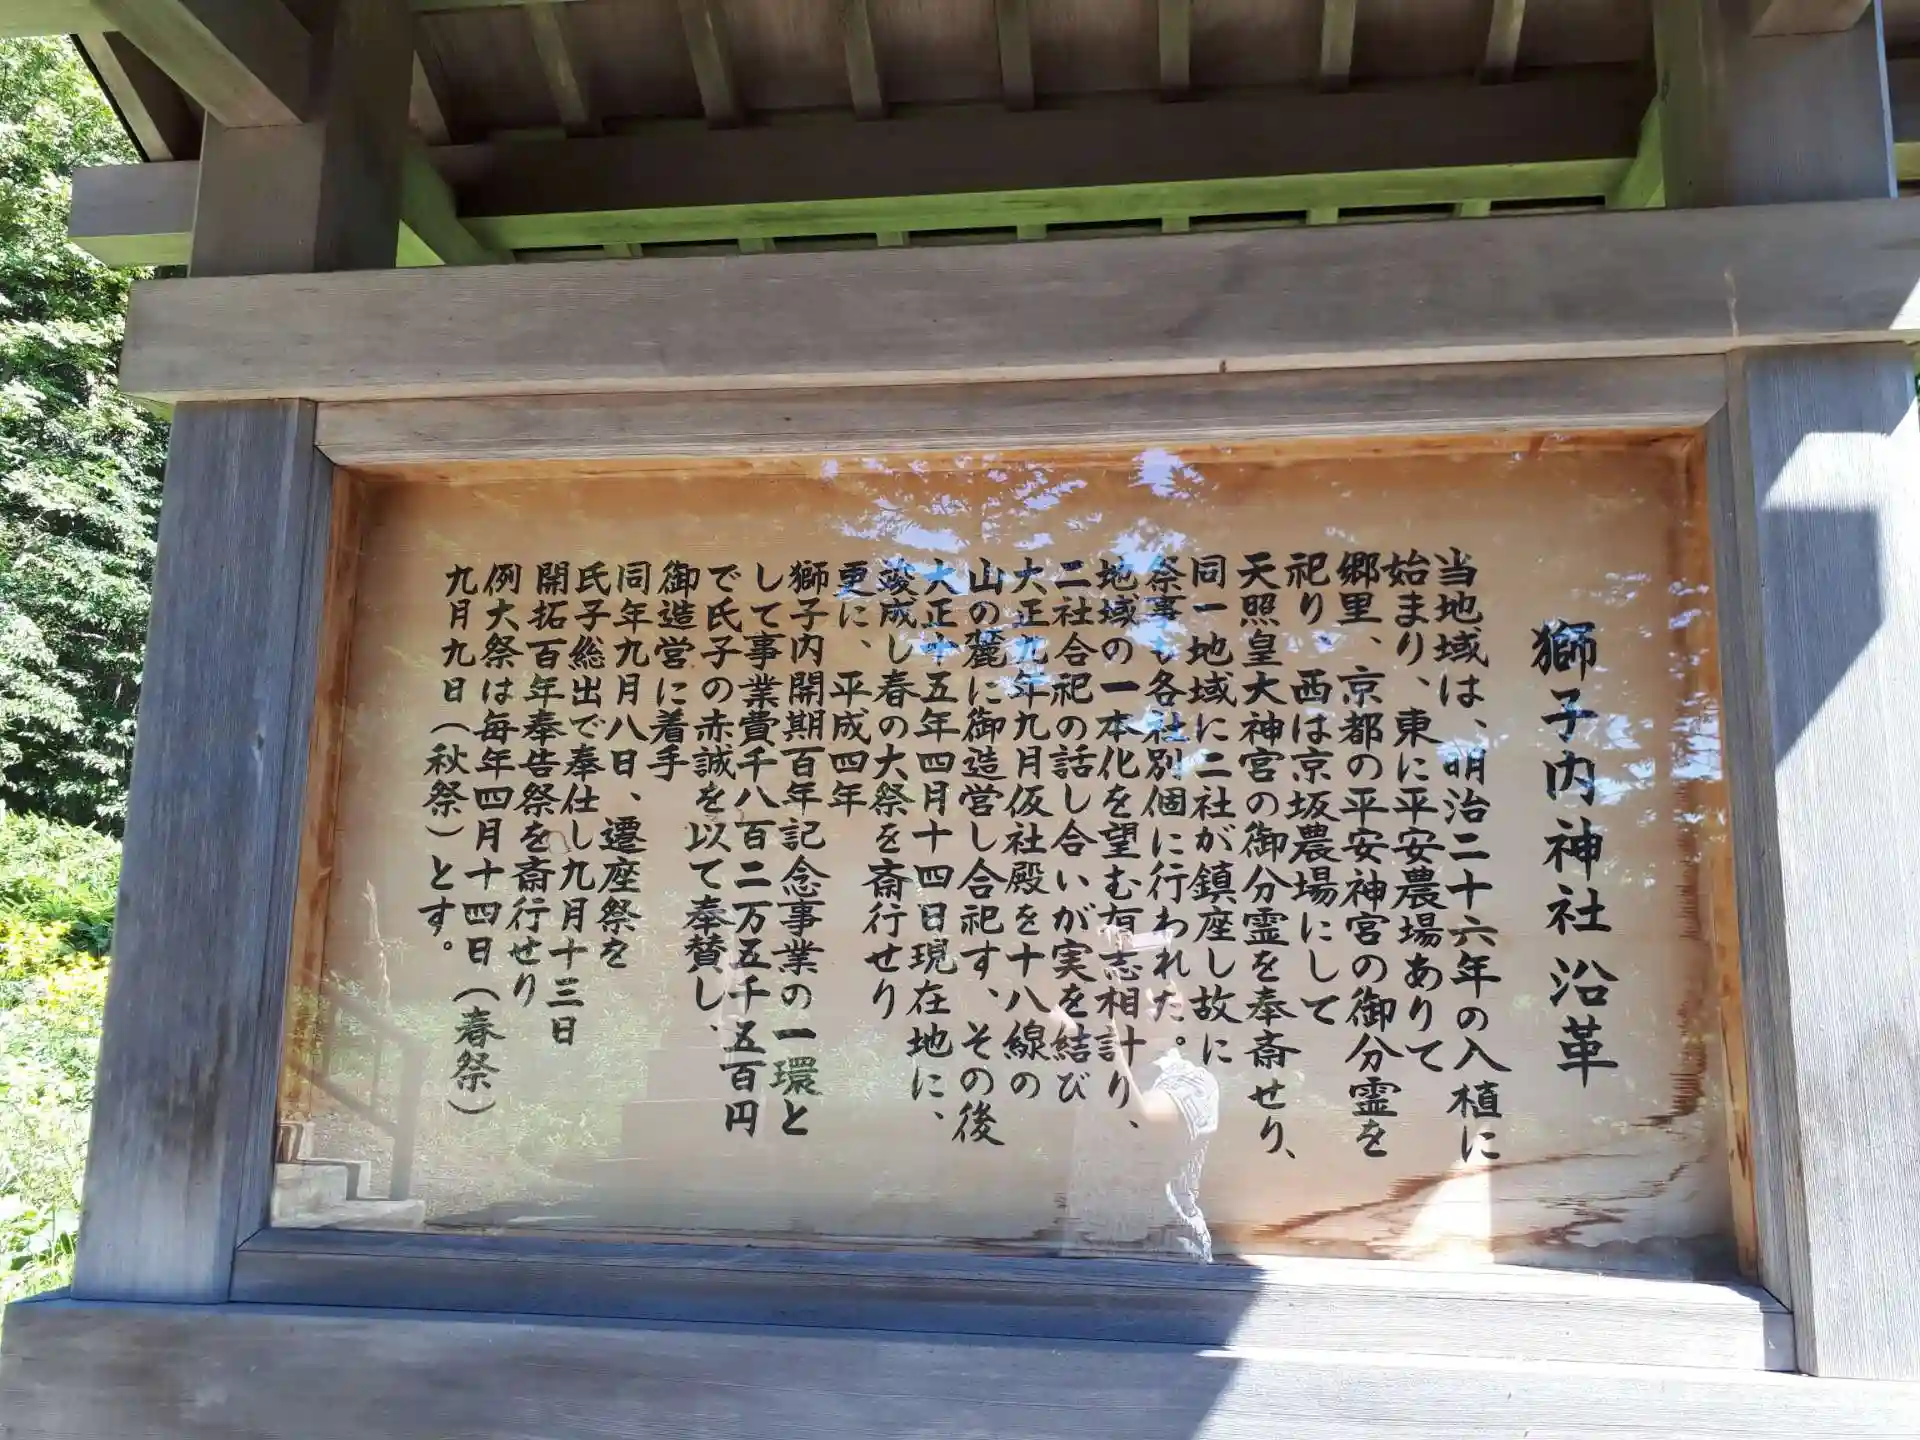 獅子内神社 沿革
当地域は、明治二十六年の入植に
始まり、東に平安農場ありて
郷里、京都の平安神宮の御分霊を
祀り、西は京坂農場にして
天照皇大神宮の御分霊を奉斎せり、
同一地域に二社が鎮座し故に
祭事も各社別個に行われた。
地域の一本化を望む有志相計り、
二社合祀の話し合いが実を結び
大正九年九月仮社殿を十八線の
山の麓に御造営し合祀す、その後
大正十五年四月十四日現在地に、
竣成し春の大祭を斎行せり
更に、平成四年
獅子内開期百年記念事業の一環と
して事業費千八百二万五千五百円
で氏子の赤誠を以て奉賛し、
御造営に着手
同年九月八日、遷座祭を
氏子総出で奉仕し九月十三日
開拓百年奉告祭を斎行せり
例大祭は毎年四月十四日(春祭)
九月九日(秋祭)とす。